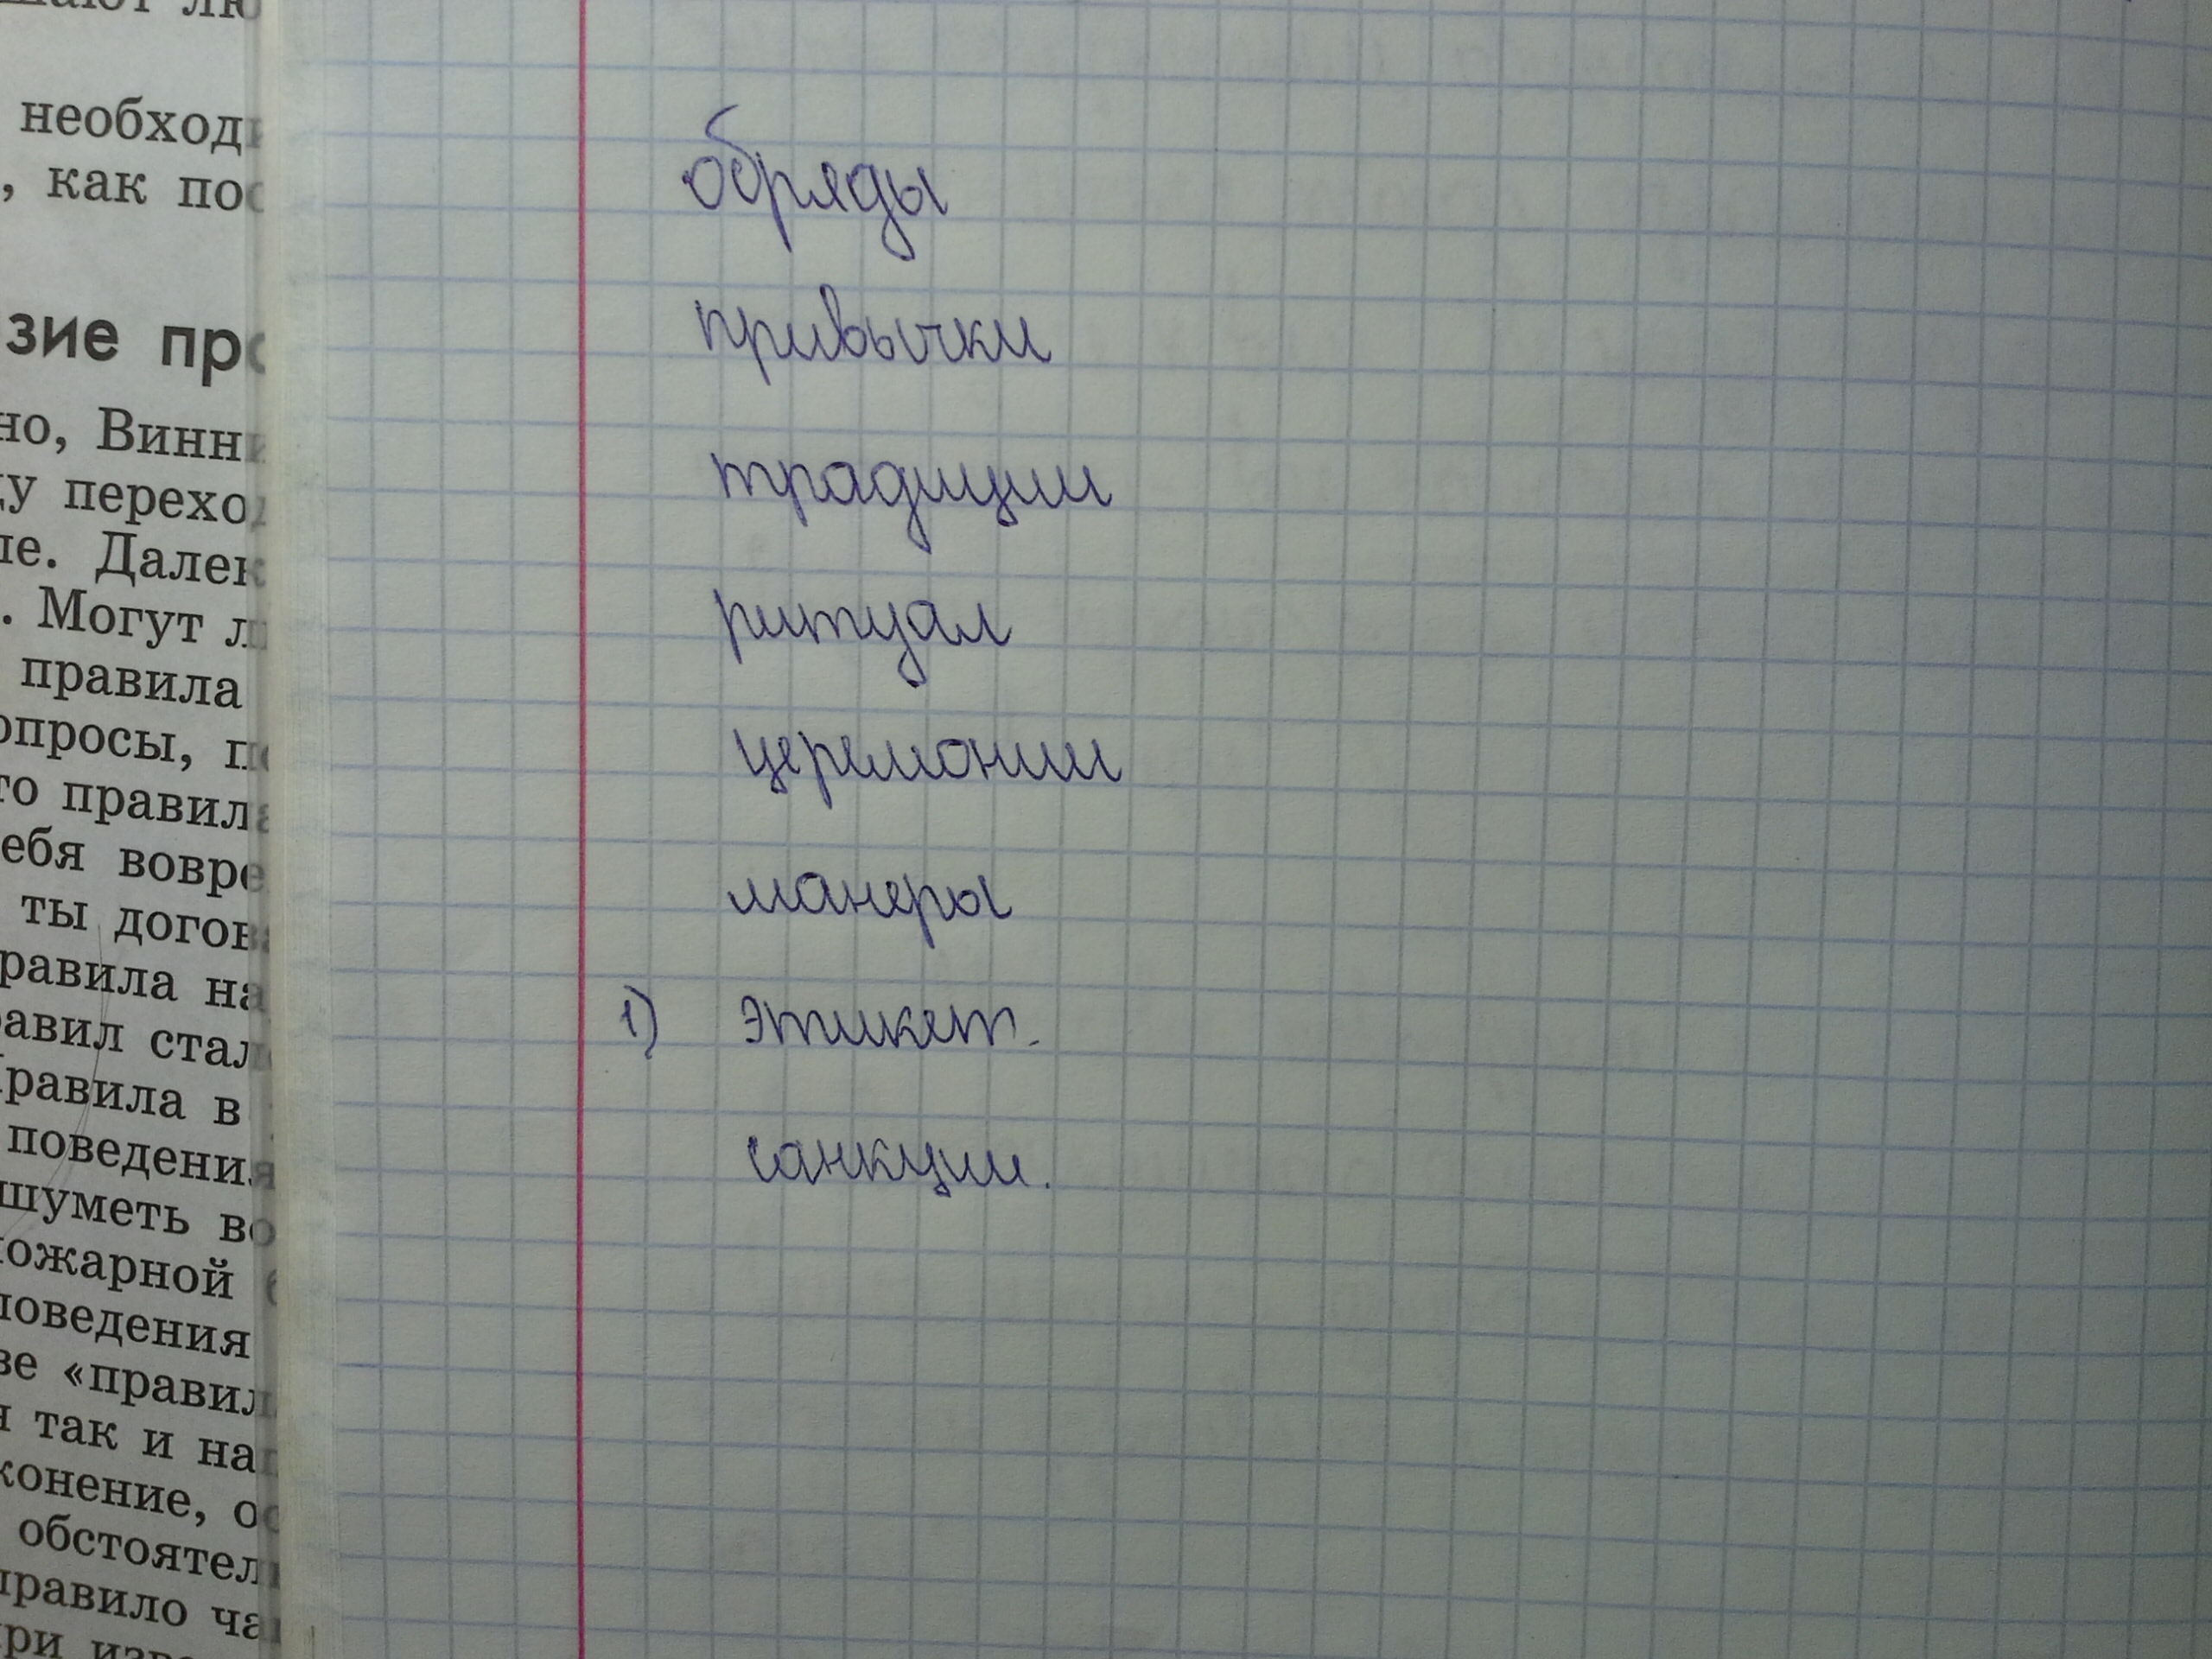 необход
, как по
зие пр
но, Винн
у перехо
ле. Далек
. Могут л
правила
опросы, п
то правил
ебя вовре
ты догов
равила на
равил стал
Правила в
поведения
шуметь во
пожарной
поведения
ве «правил
так и на
конение, о
обстоятел
правило ча
при
обряды
привычки
традиции
ритуал
церемонии
манеры
1) этикет.
санкции.